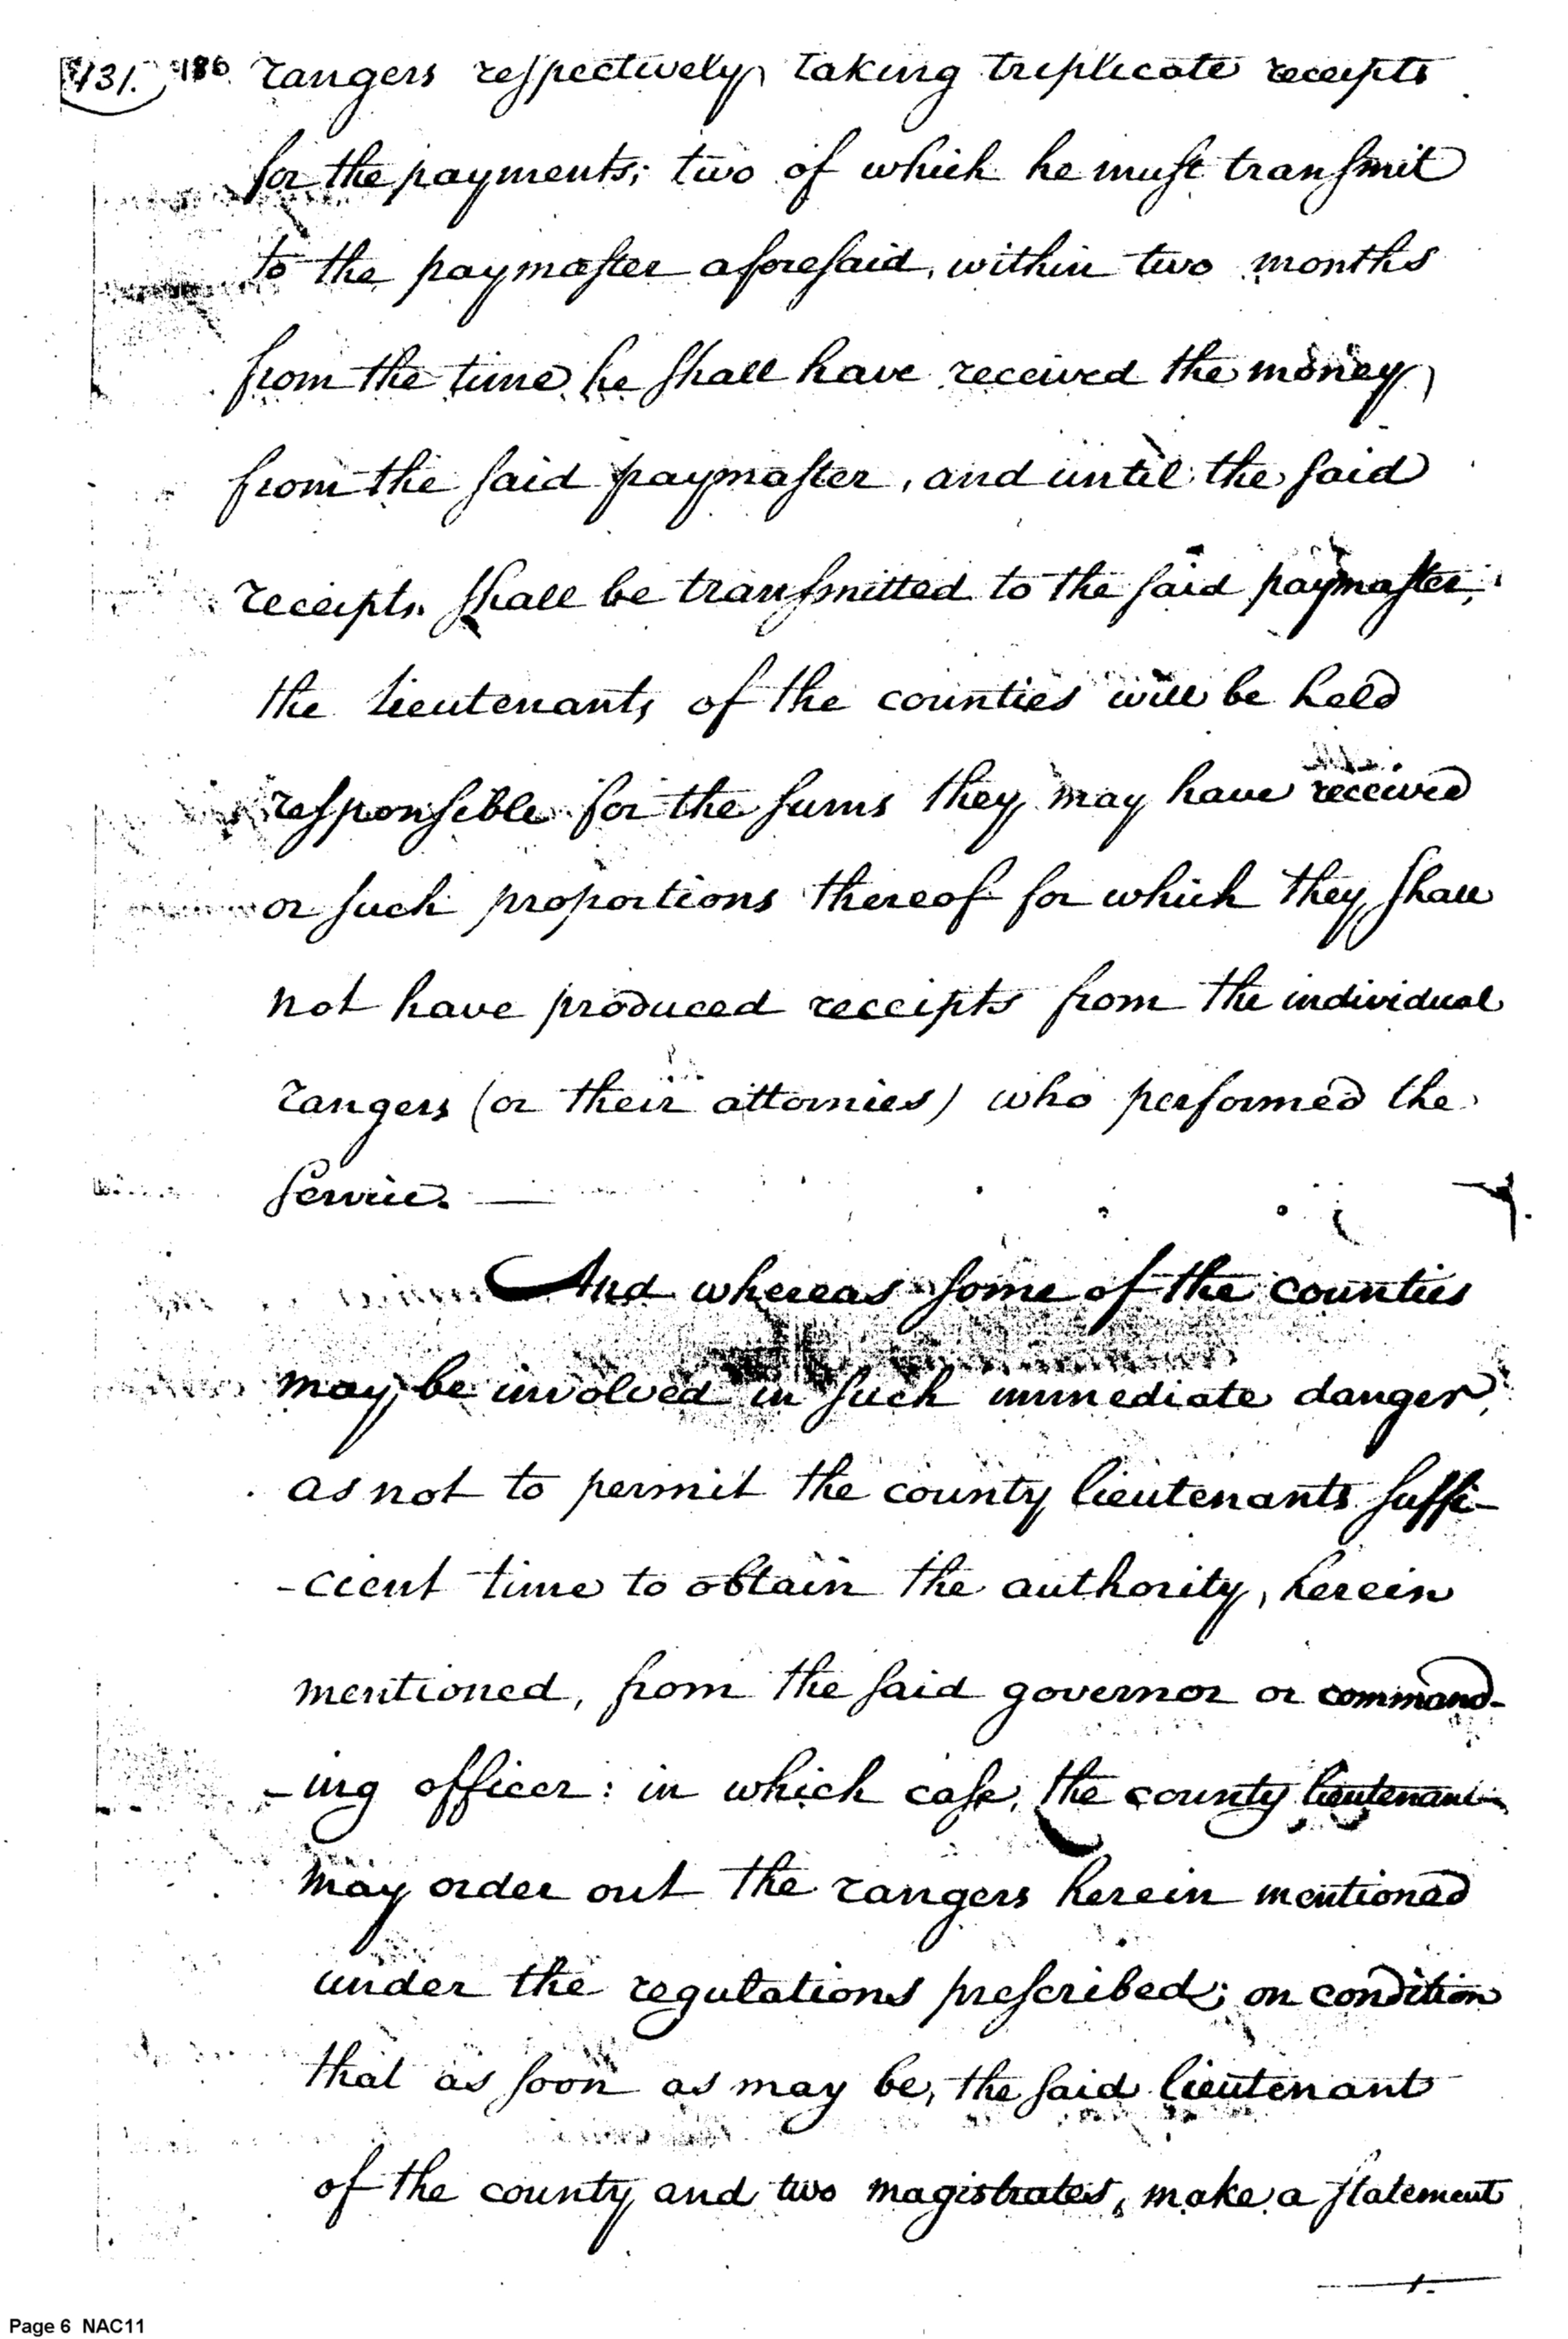 431. 186. rangers respectively, taking triplicate receipts
for the payments; two of which he must transmit
to the paymaster aforesaid, within two months
from the time he shall have received the money,
from the said paymaster, and until the said
receipts shall be transmitted to the said paymaster,
the lieutenants of the counties will be held
responsible for the sums they may have received
or such proportions thereof for which they shall
not have produced receipts from the individual
rangers (or their attornies) who performed the
service. —
And whereas some of the counties
may be involved in such immediate danger,
as not to permit the county lieutenants suffi-
-cient time to obtain the authority, herein
mentioned, from the said governor or command-
-ing officer: in which case, the county lieutenant
may order out the rangers herein mentioned
under the regulations prescribed; on condition
that as soon as may be, the said lieutenant
of the county and two magistrates, make a statement
Page 6 NAC11